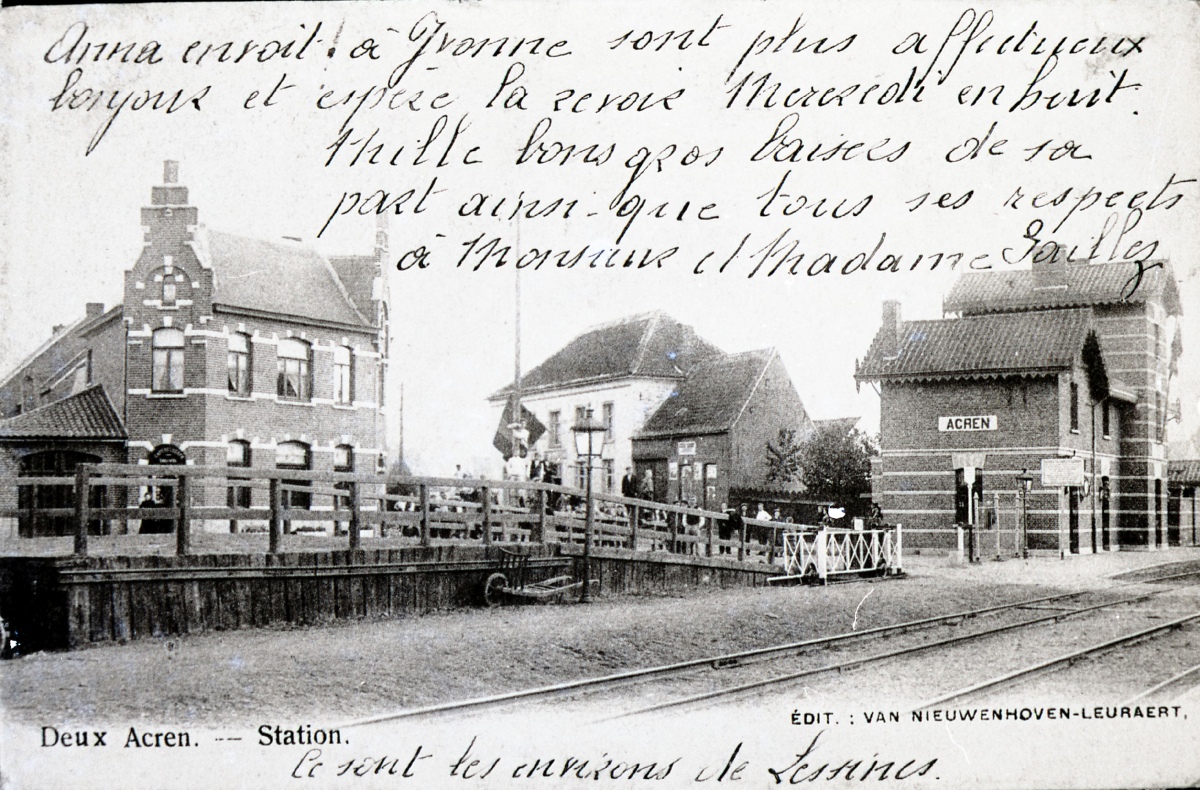 Anna envoit à Yvonne sont plus affectueux
bonjour et espère la revoir Mercredi en huit.
Mille bons gros baisers de sa
part ainsi-que tous ses respects
à Monsieur et Madame
ACREN
ÉDIT. : VAN NIEUWENHOVEN-LEURAERT,
Deux Acren. -- Station.
Ce sont les environs de Lessines.